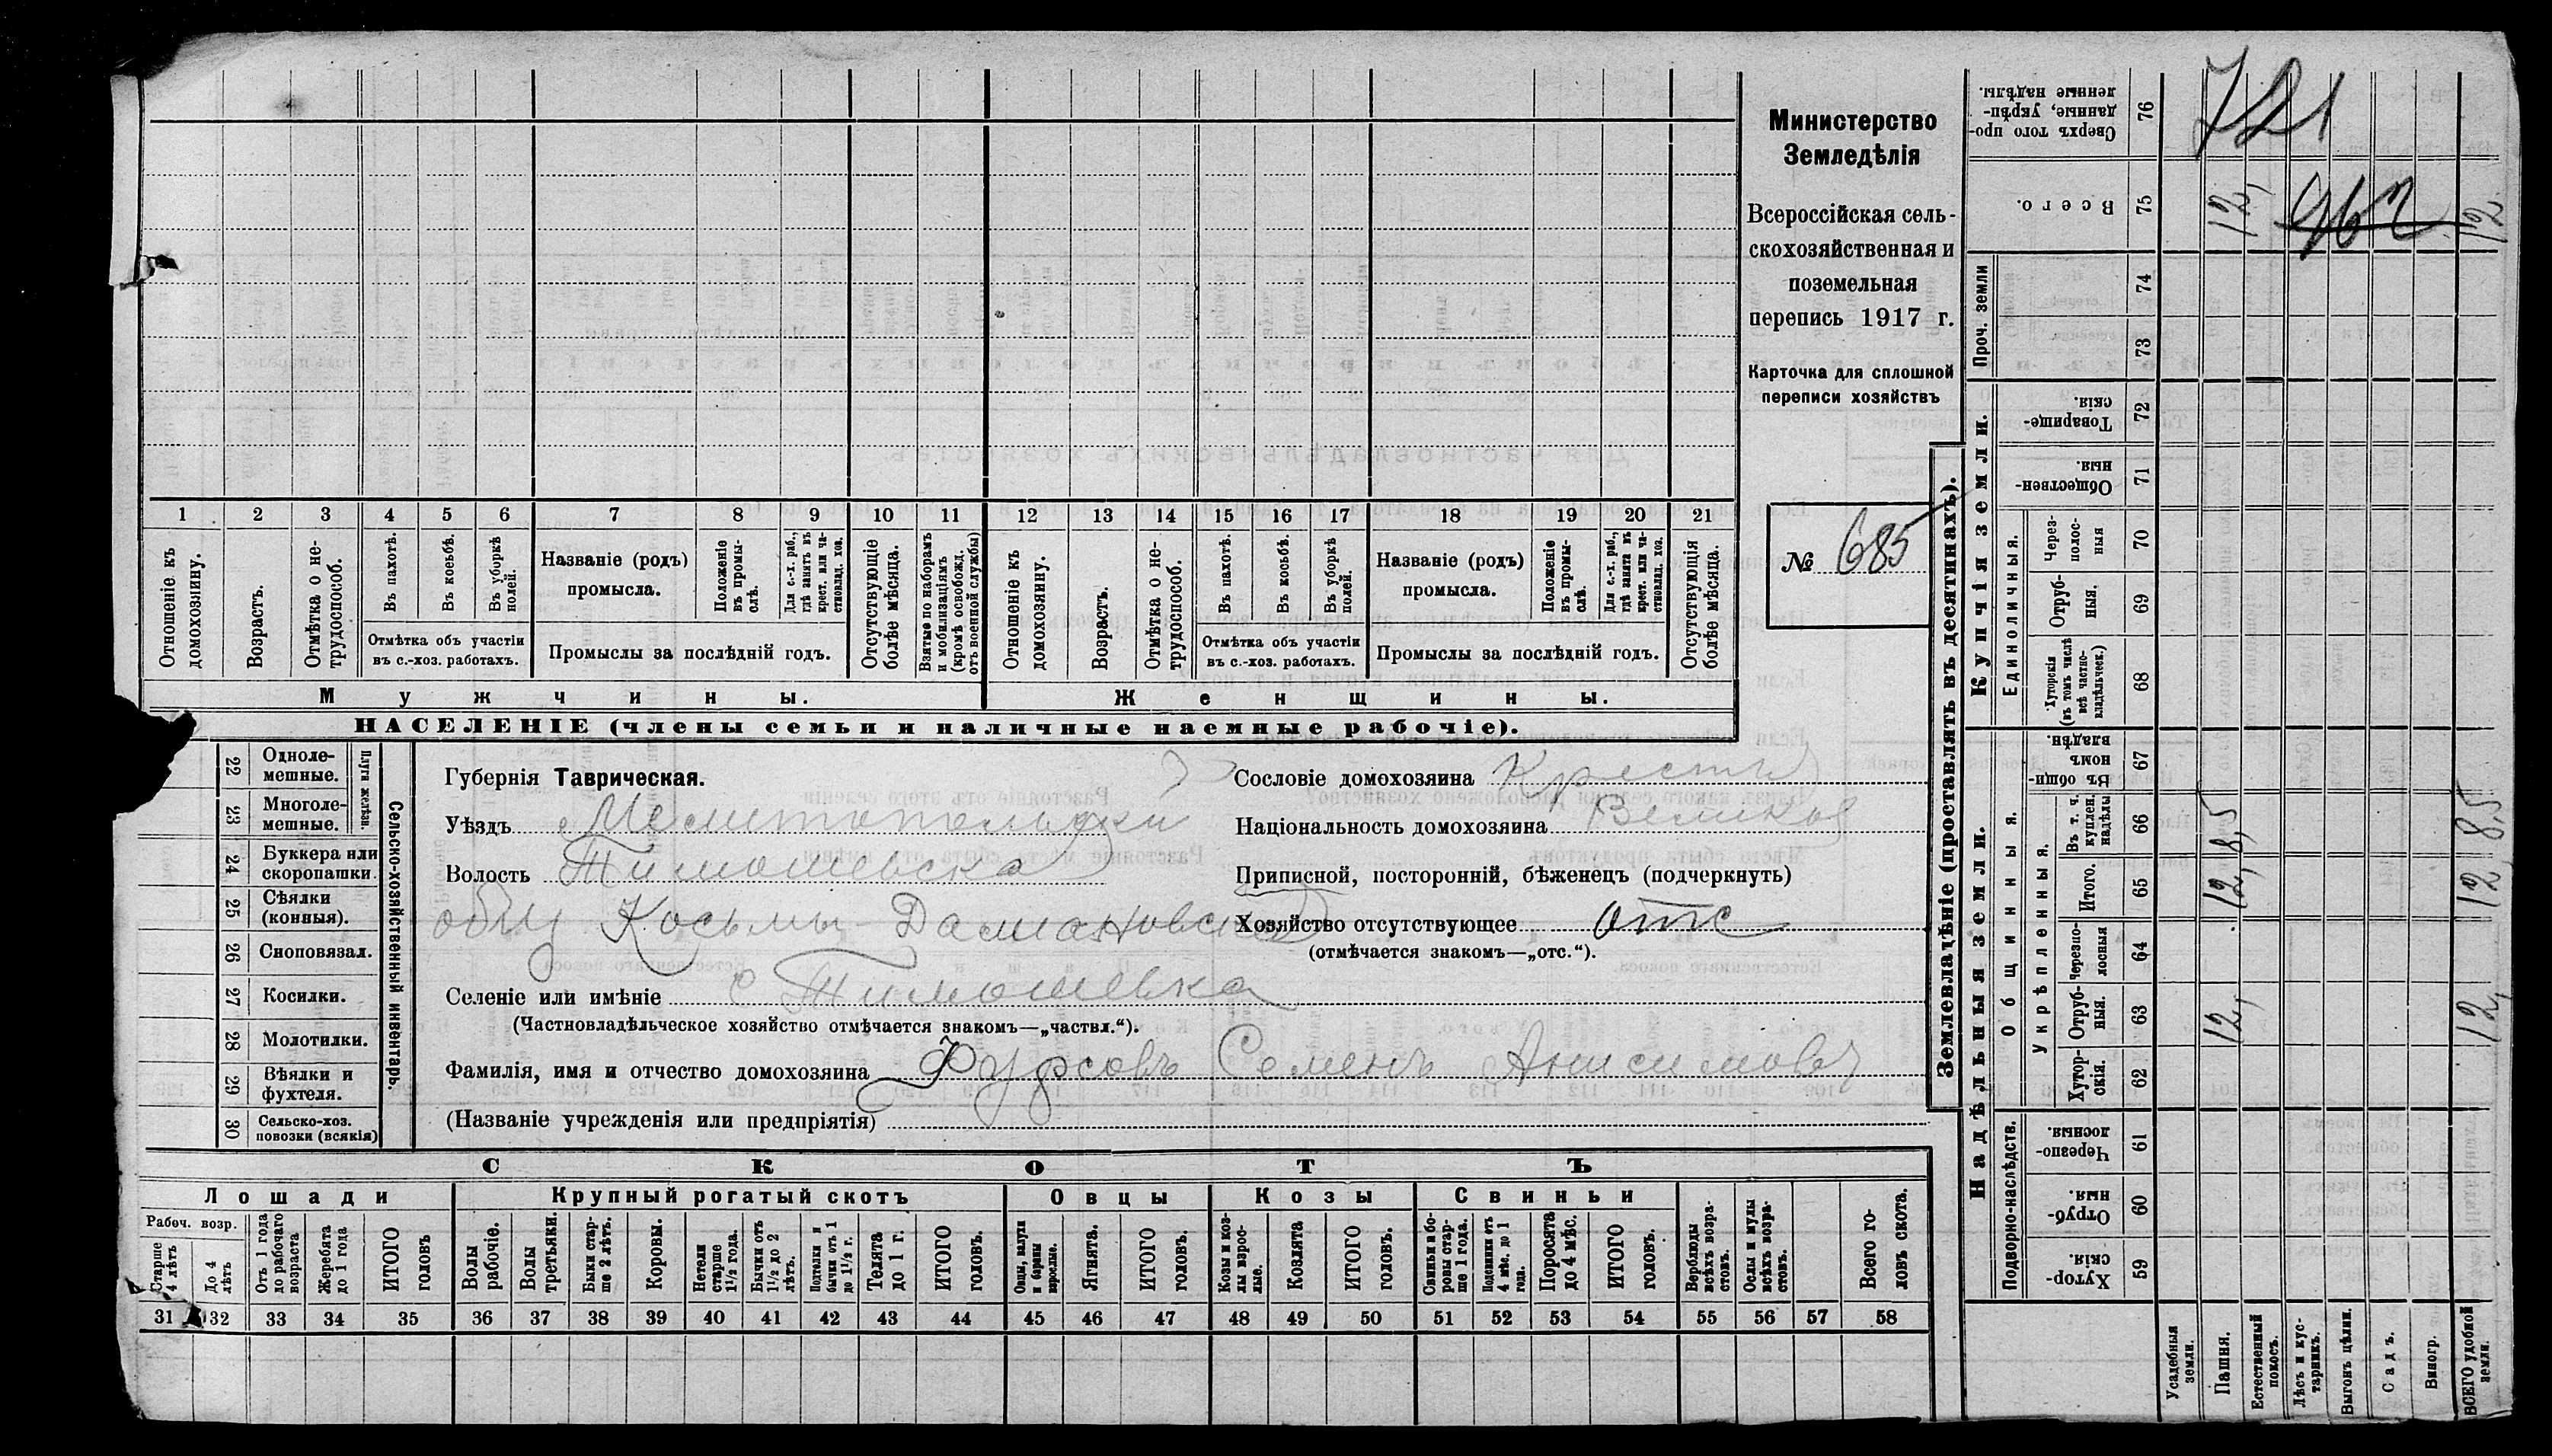 Министерство
Земледѣлія
Всероссійская сель-
скохозяйственная и
поземельная
перепись 1917 г.
Карточка для сплошной
переписи хозяйствъ
№ 685
1 2 3 4 5 6 7 8 9 10 11 12 13 14 15 16 17 18 19 20 21
Отношеніе къ домохозяину.
Возрастъ.
Отмѣтка о не-трудоспособ.
Въ пахотѣ.
Въ косьбѣ.
Въ уборкѣ полей.
Отмѣтка объ участіи
въ с.-хоз. работахъ.
Названіе (родъ)
промысла.
Положеніе въ промы-слѣ.
Для с.-х. раб., гдѣ занятъ въ крест. или ча-стновлад. хоз.
Промыслы за послѣдній годъ.
Отсутствующіе болѣе мѣсяца.
Взятые по наборамъ и мобилизаціямъ (кромѣ освобожд. отъ военной службы)
Отношеніе къ домохозяину.
Возрастъ.
Отмѣтка о не-трудоспособ.
Въ пахотѣ.
Въ косьбѣ.
Въ уборкѣ полей.
Отмѣтка объ участіи
въ с.-хоз. работахъ.
Названіе (родъ)
промысла.
Положеніе въ промы-слѣ.
Для с.-х. раб., гдѣ занята въ крест. или ча-стновлад. хоз.
Промыслы за послѣдній годъ.
Отсутствующія болѣе мѣсяца.
Мужчины.
Женщины.
НАСЕЛЕНІЕ (члены семьи и наличные наемные рабочіе).
22 Одноле-мешные.
23 Многоле-мешные.
Плуги желѣзн.
24 Буккера или скоропашки.
25 Сѣялки (конныя).
26 Сноповязал.
27 Косилки.
28 Молотилки.
29 Вѣялки и фухтеля.
30 Сельско-хоз. повозки (всякія)
Сельско-хозяйственный инвентарь.
Губернія Таврическая.
Уѣздъ Мелитопольскій
Волость Тимошевска
общ Косьмы-Даміановское
Селеніе или имѣніе с Тимошевка
(Частновладѣльческое хозяйство отмѣчается знакомъ—„частвл.“).
Фамилія, имя и отчество домохозяина Фурсовъ Семенъ Анисимовъ
(Названіе учрежденія или предпріятія)
Сословіе домохозяина Крестьян
Національность домохозяина Великор
Приписной, посторонній, бѣженецъ (подчеркнуть)
Хозяйство отсутствующее отс
(отмѣчается знакомъ—„отс.“).
СКОТЪ
Лошади
Рабоч. возр.
Старше 4 лѣтъ
До 4 лѣтъ
Отъ 1 года до рабочаго возраста
Жеребята до 1 года
ИТОГО головъ
Крупный рогатый скотъ
Волы рабочіе.
Волы третьяки.
Быки стар-ше 2 лѣтъ.
Коровы.
Нетели старше 1½ года.
Бычки отъ 1½ до 2 лѣтъ.
Подтелки и бычки отъ 1 до 1½ г.
Телята до 1 г.
ИТОГО головъ.
Овцы
Овцы, валухи и бараны взрослые.
Ягнята.
ИТОГО головъ.
Козы
Козы и коз-лы взрос-лые.
Козлята
ИТОГО головъ.
Свиньи
Свиньи и бо-ровы стар-ше 1 года.
Подсвинки отъ 4 мѣс. до 1 года.
Поросята до 4 мѣс.
ИТОГО головъ.
Верблюды всѣхъ возра-стовъ.
Ослы и мулы всѣхъ возра-стовъ.
Всего го-ловъ скота.
31 32 33 34 35 36 37 38 39 40 41 42 43 44 45 46 47 48 49 50 51 52 53 54 55 56 57 58
Землевладѣніе (проставлять въ десятинахъ).
Надѣльныя земли.
Купчія земли.
Проч. земли
Подворно-наслѣдств.
Общинныя.
Укрѣпленныя.
Единоличныя.
Хутор-скія. 59
Отруб-ныя. 60
Черезпо-лосныя. 61
Хутор-скія. 62
Отруб-ныя. 63
Черезпо-лосныя 64
Итого. 65
Въ т. ч. куплен. надѣлы 66
Въ общин-номъ владѣн. 67
Хуторскія (въ томъ числѣ всѣ частно-владѣльческ.) 68
Отруб-ныя. 69
Через-полос-ныя 70
Обществен-ныя. 71
Товарище-скія. 72
73
74
Всего. 75
Сверхъ того про-данные, укрѣп-ленные надѣлы. 76
Усадебныя земли.
Пашня. 12, 12, 8,5 12,
Естественный покосъ.
Лѣсъ и кус-тарникъ.
Выгонъ цѣлин.
Садъ.
Виногр.
ВСЕГО удобной земли. 12, 12, 8,5 12
721
962